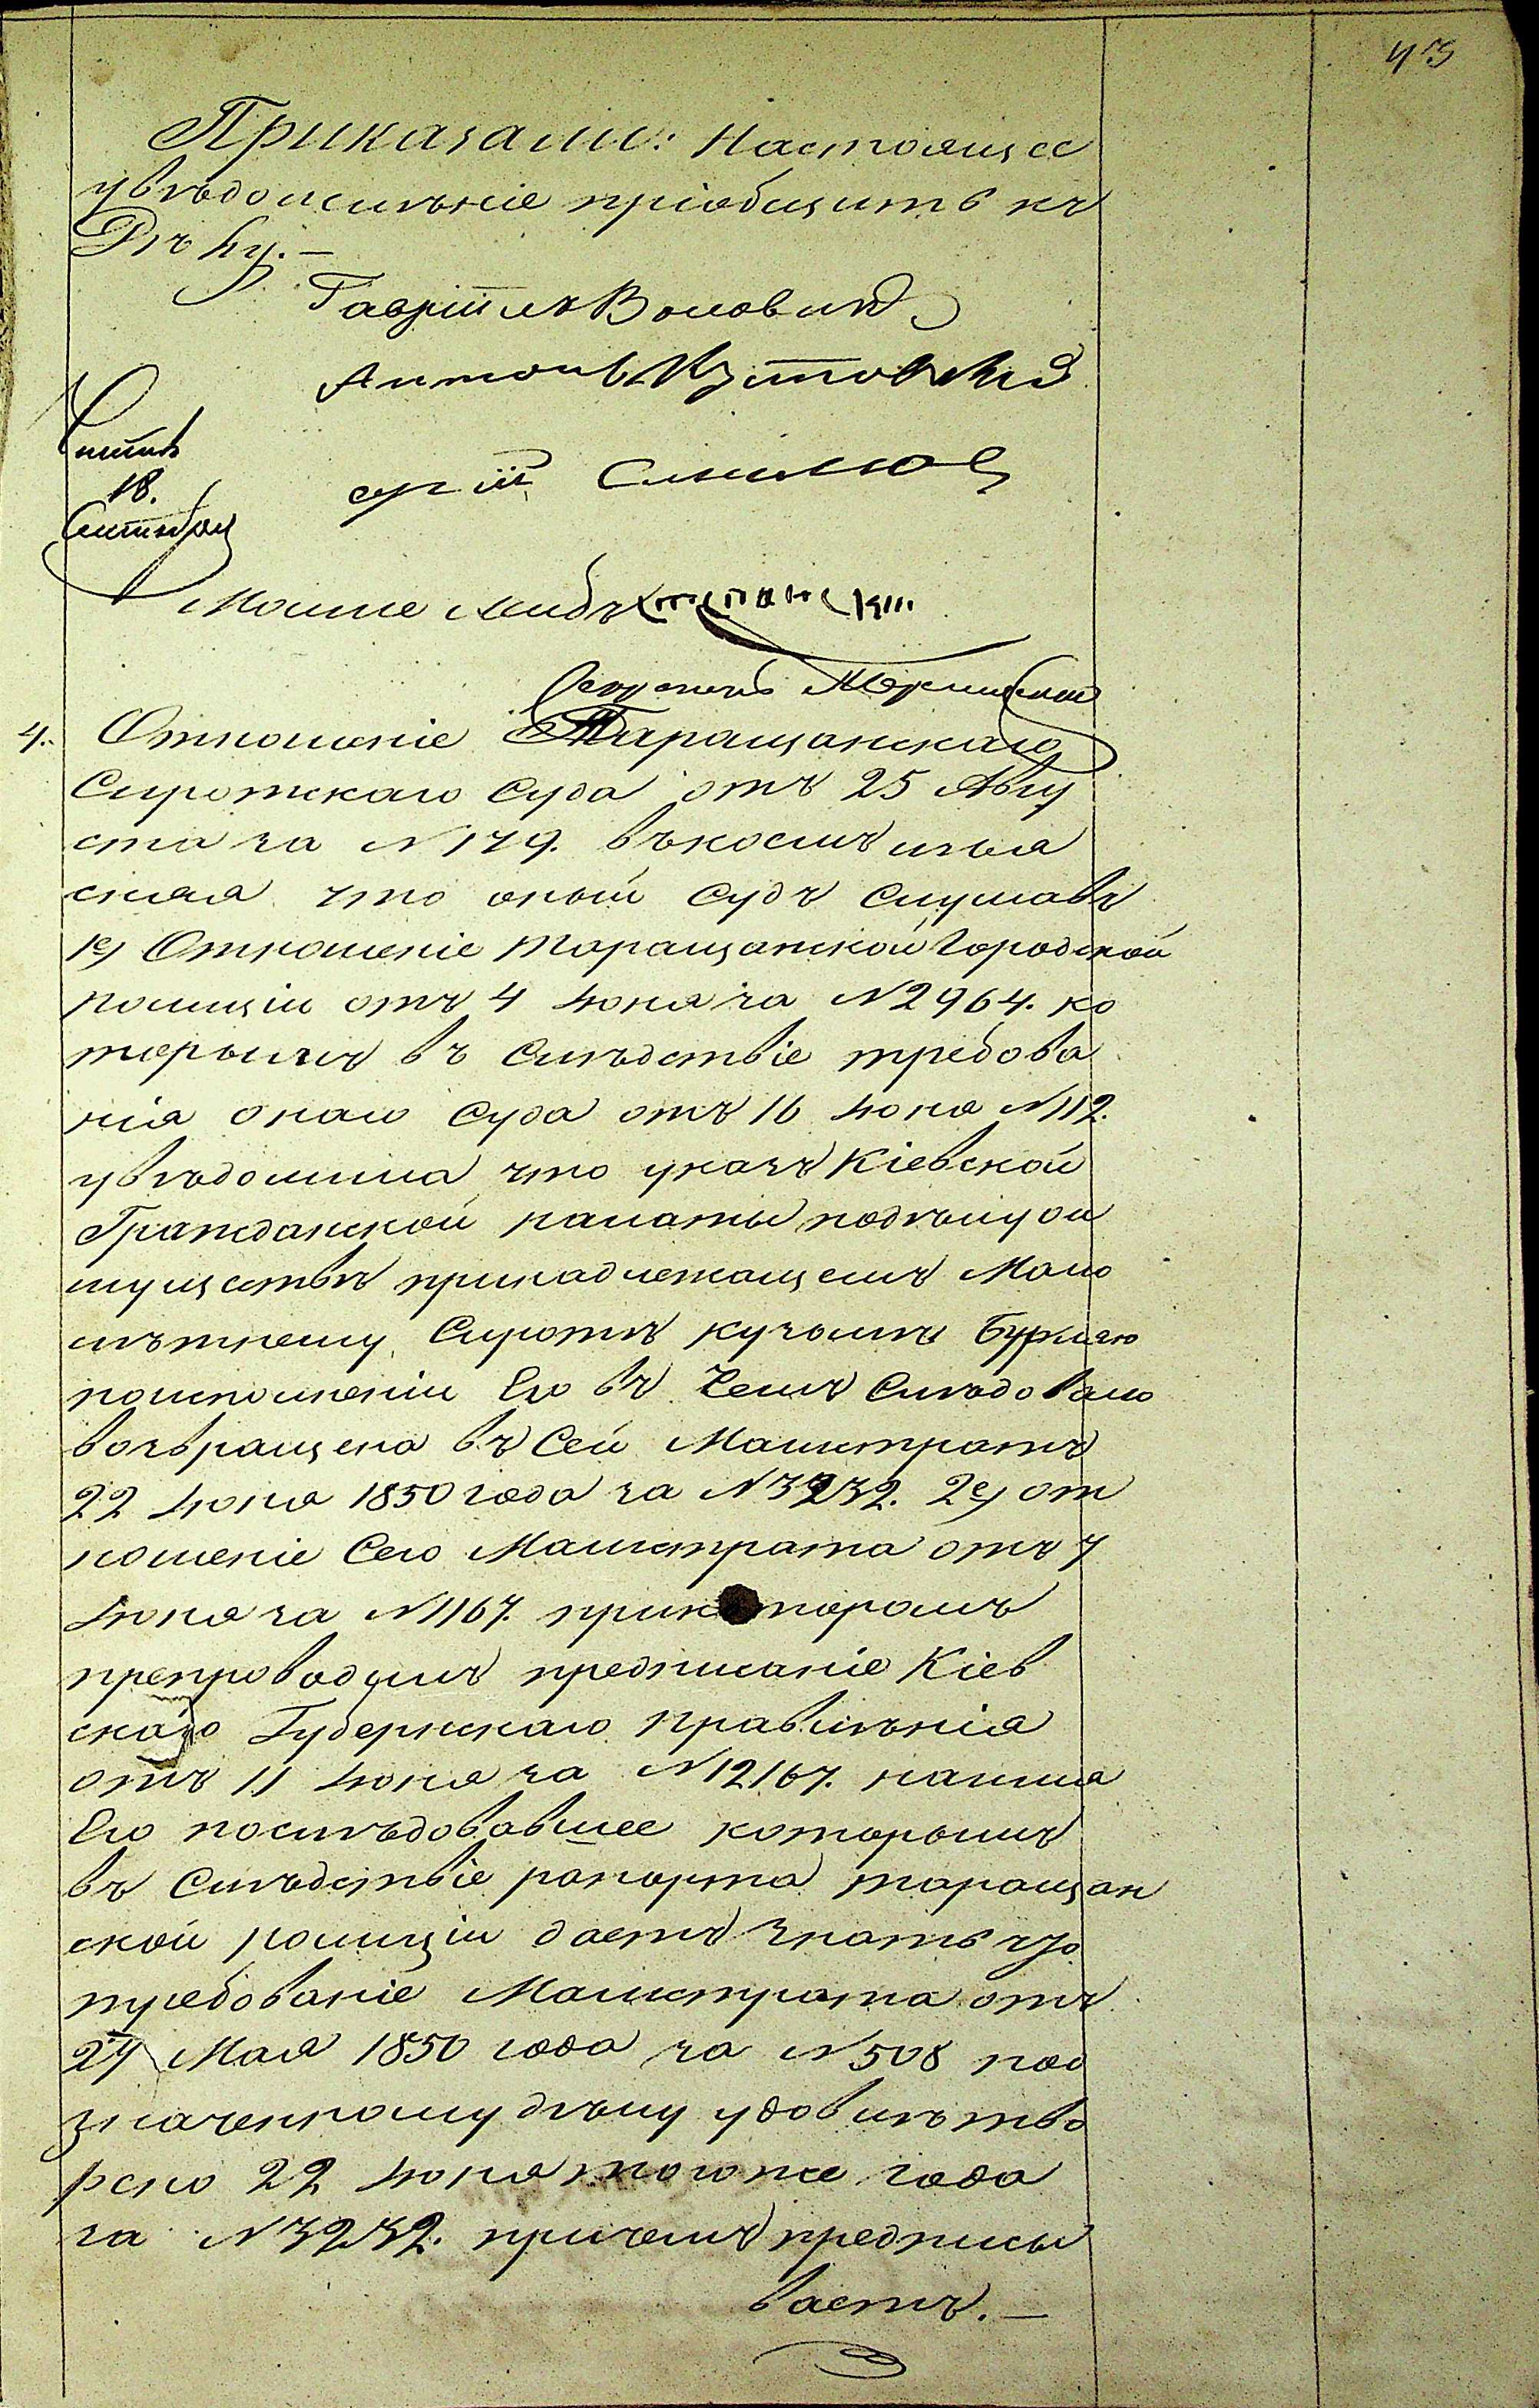 43
Приказали: Настоящее
увѣдомлѣніе пріобщить къ
Дѣлу.—
Гавріилъ
Антонъ
Читалъ
18.
Сентября
4. Отношеніе Таращанскаго
Сиротскаго Суда отъ 25 Авгу
ста за N 179. въкоемъ изъя
сняя что оный Судъ Слушавъ
1е) Отношеніе Таращанской Городской
полиціи отъ 4 Іюня за N 2964. ко
торымъ въ Слѣдствіе требова
нія онаго Суда отъ 16 Іюня N 112.
увѣдомила что указъ Кіевской
Гражданской палаты подѣлу ои
муществѣ принадлежащемъ Мало
лѣтнему Сиротѣ
поисполненіи Его въ Чемъ Слѣдовало
возвращена въ Сей Магистратъ
22 Іюня 1850 года за N 3232. 2е) от
ношеніе Сего Магистрата отъ 7
Іюня за N 1167. прикоторомъ
препроводилъ предписаніе Кіев
скаго Губернскаго Правлѣнія
отъ 11 Іюня за N 12167. наимя
Его послѣдовавшее которымъ
въ Слѣдствіе рапорта таращан
ской полиціи даетъ знать что
требованіе Магистрата отъ
27 Мая 1850 года за N 508 поо
значенному дѣлу удовлѣтво
рено 22 Іюня тогоже года
за N 3232. причемъ предписы
ваетъ.—